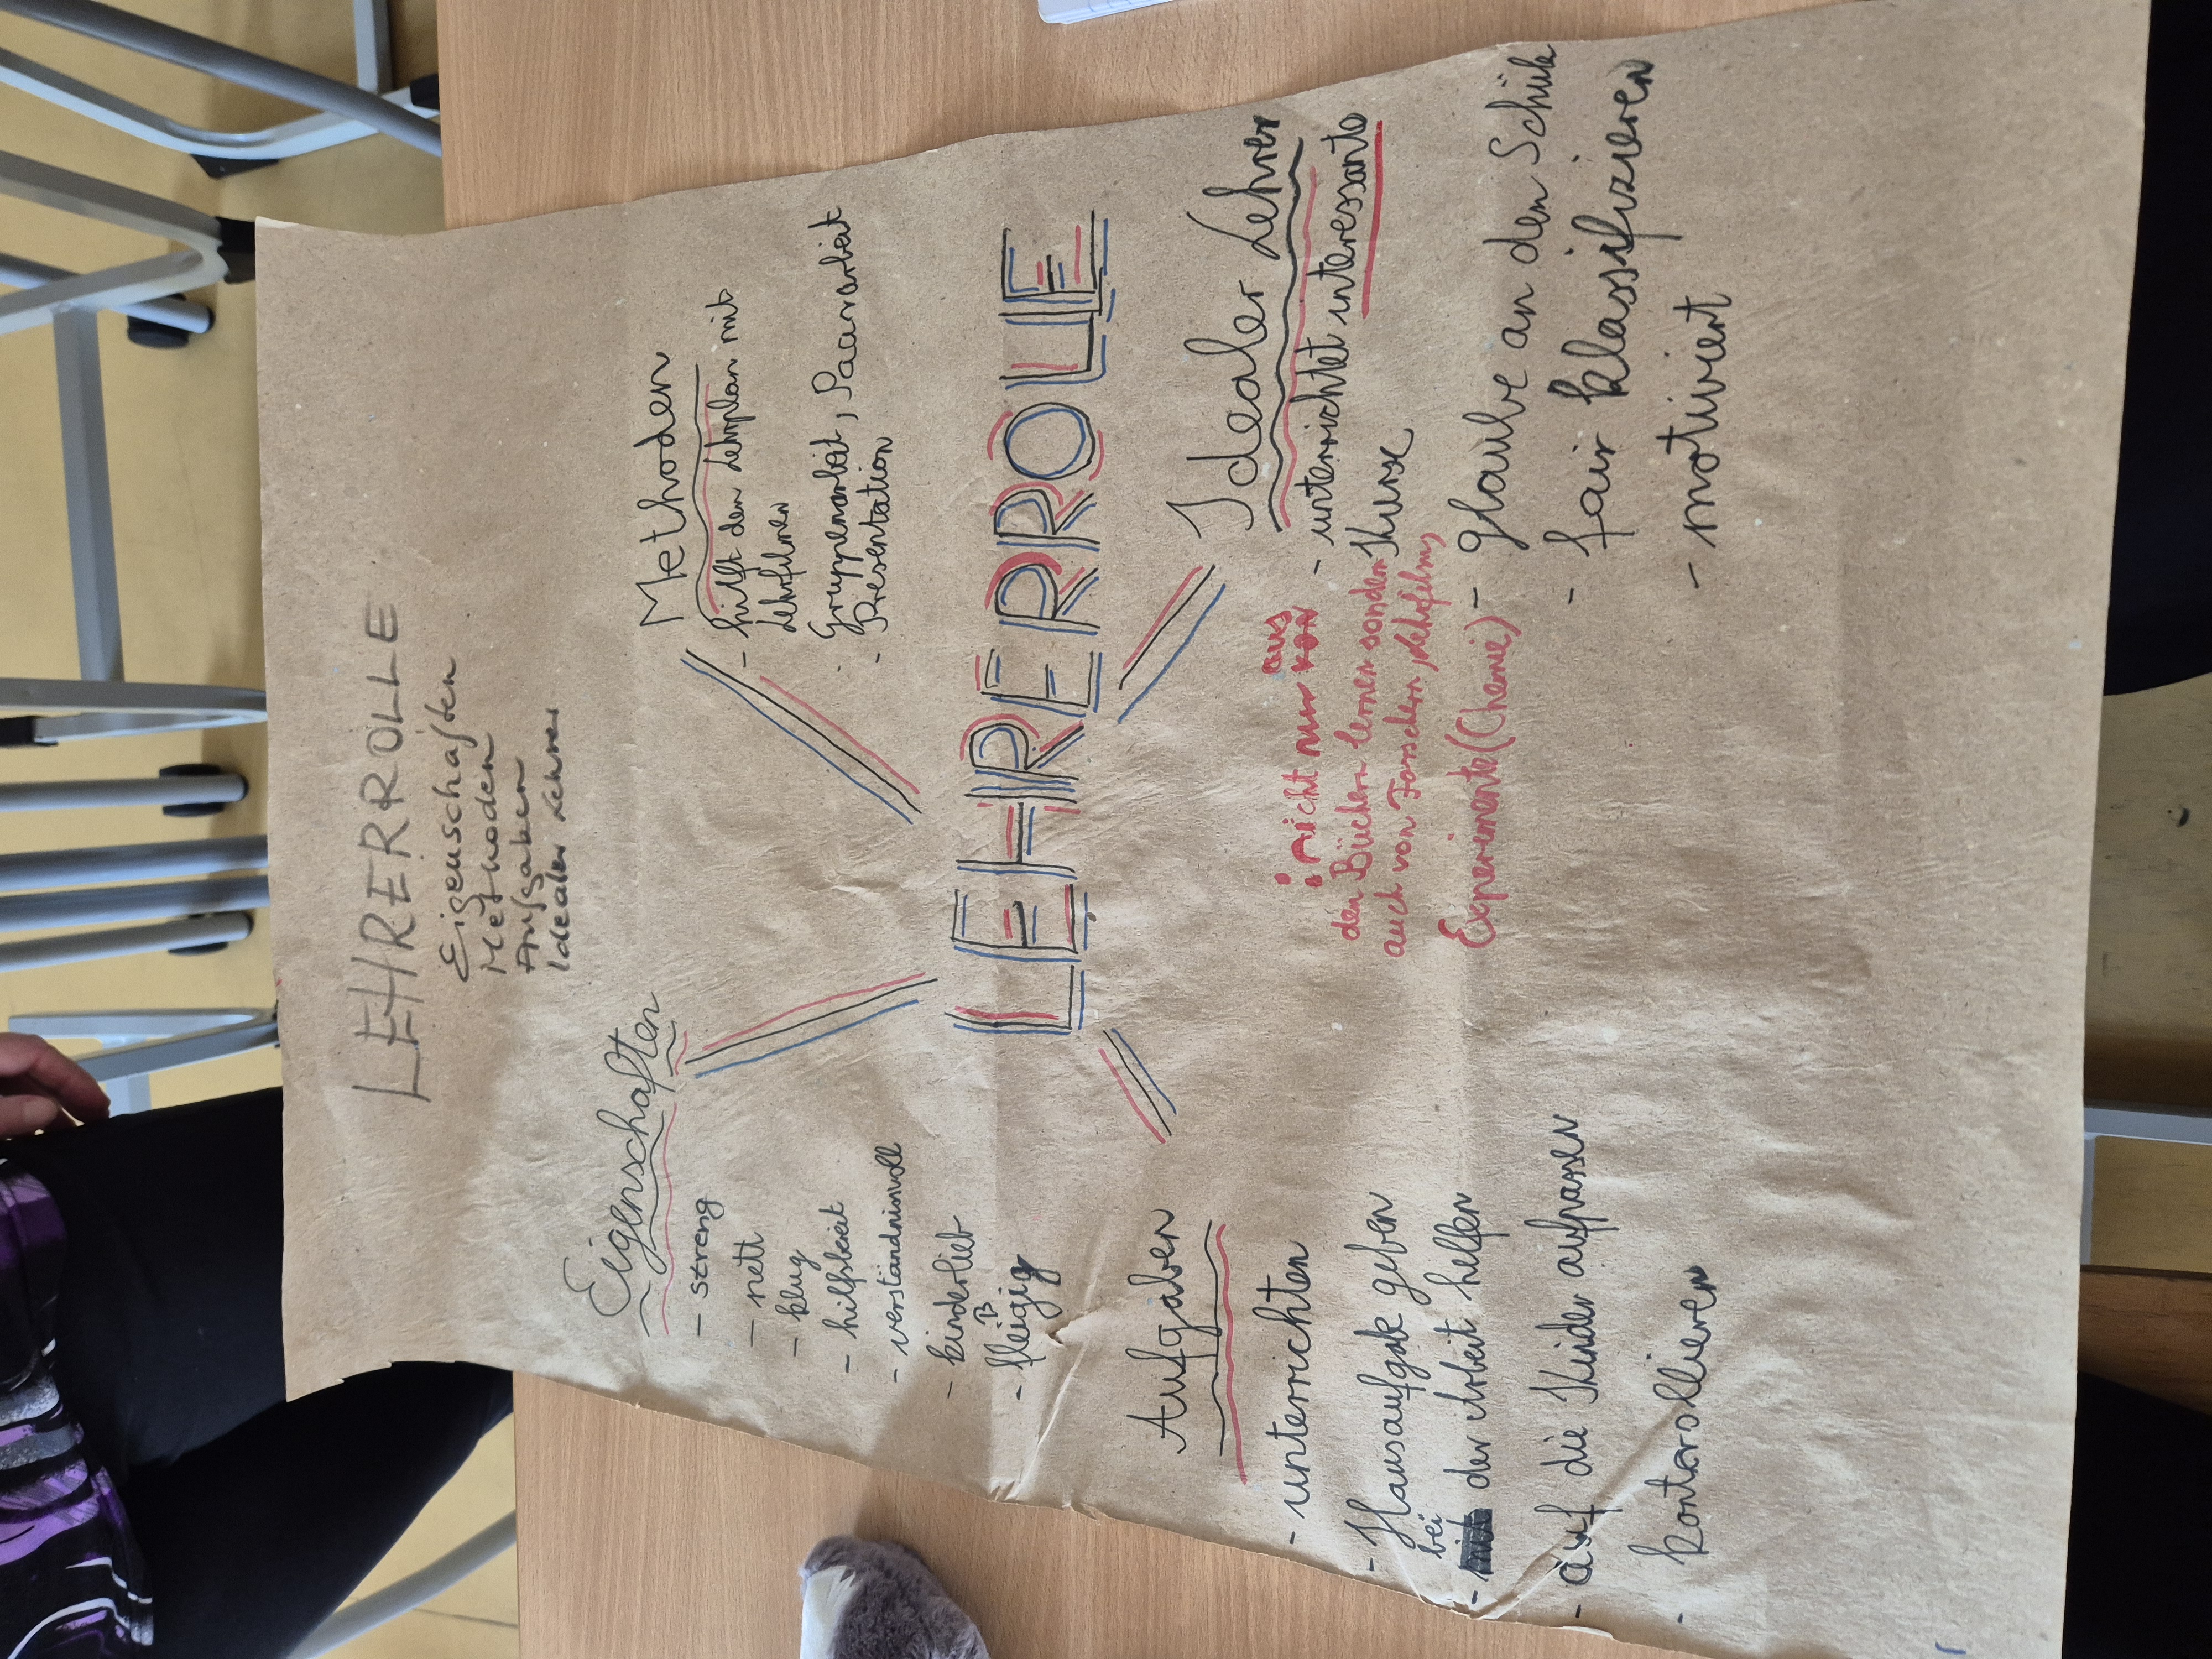 LEHRERROLLE
Eigenschaften
Methoden
Aufgaben
Idealer Lehrer
Eigenschaften
- streng
- nett
- klug
- hilfsbereit
- verständnisvoll
- kinderlieb
ß
- fleigig
Methoden
- hilft den Lehrplan mit
Lehrfilmen
- Gruppenarbeit, Paararbeit
- Presentation
LEHRERROLE
Aufgaben
- unterrichten
- Hausaufgabe geben
bei
- der Arbeit helfen
- auf die Kinder aufpassen
- kontrollieren
Idealer Lehrer
- unterrichtet interessante
Kurse
aus
nicht nur von
den Büchern lernen sondern
auch von Forschern, Lehrfilm,
Experimente (Chemie)
- glaube an den Schüle
- fair klassifizieren
- motiviert